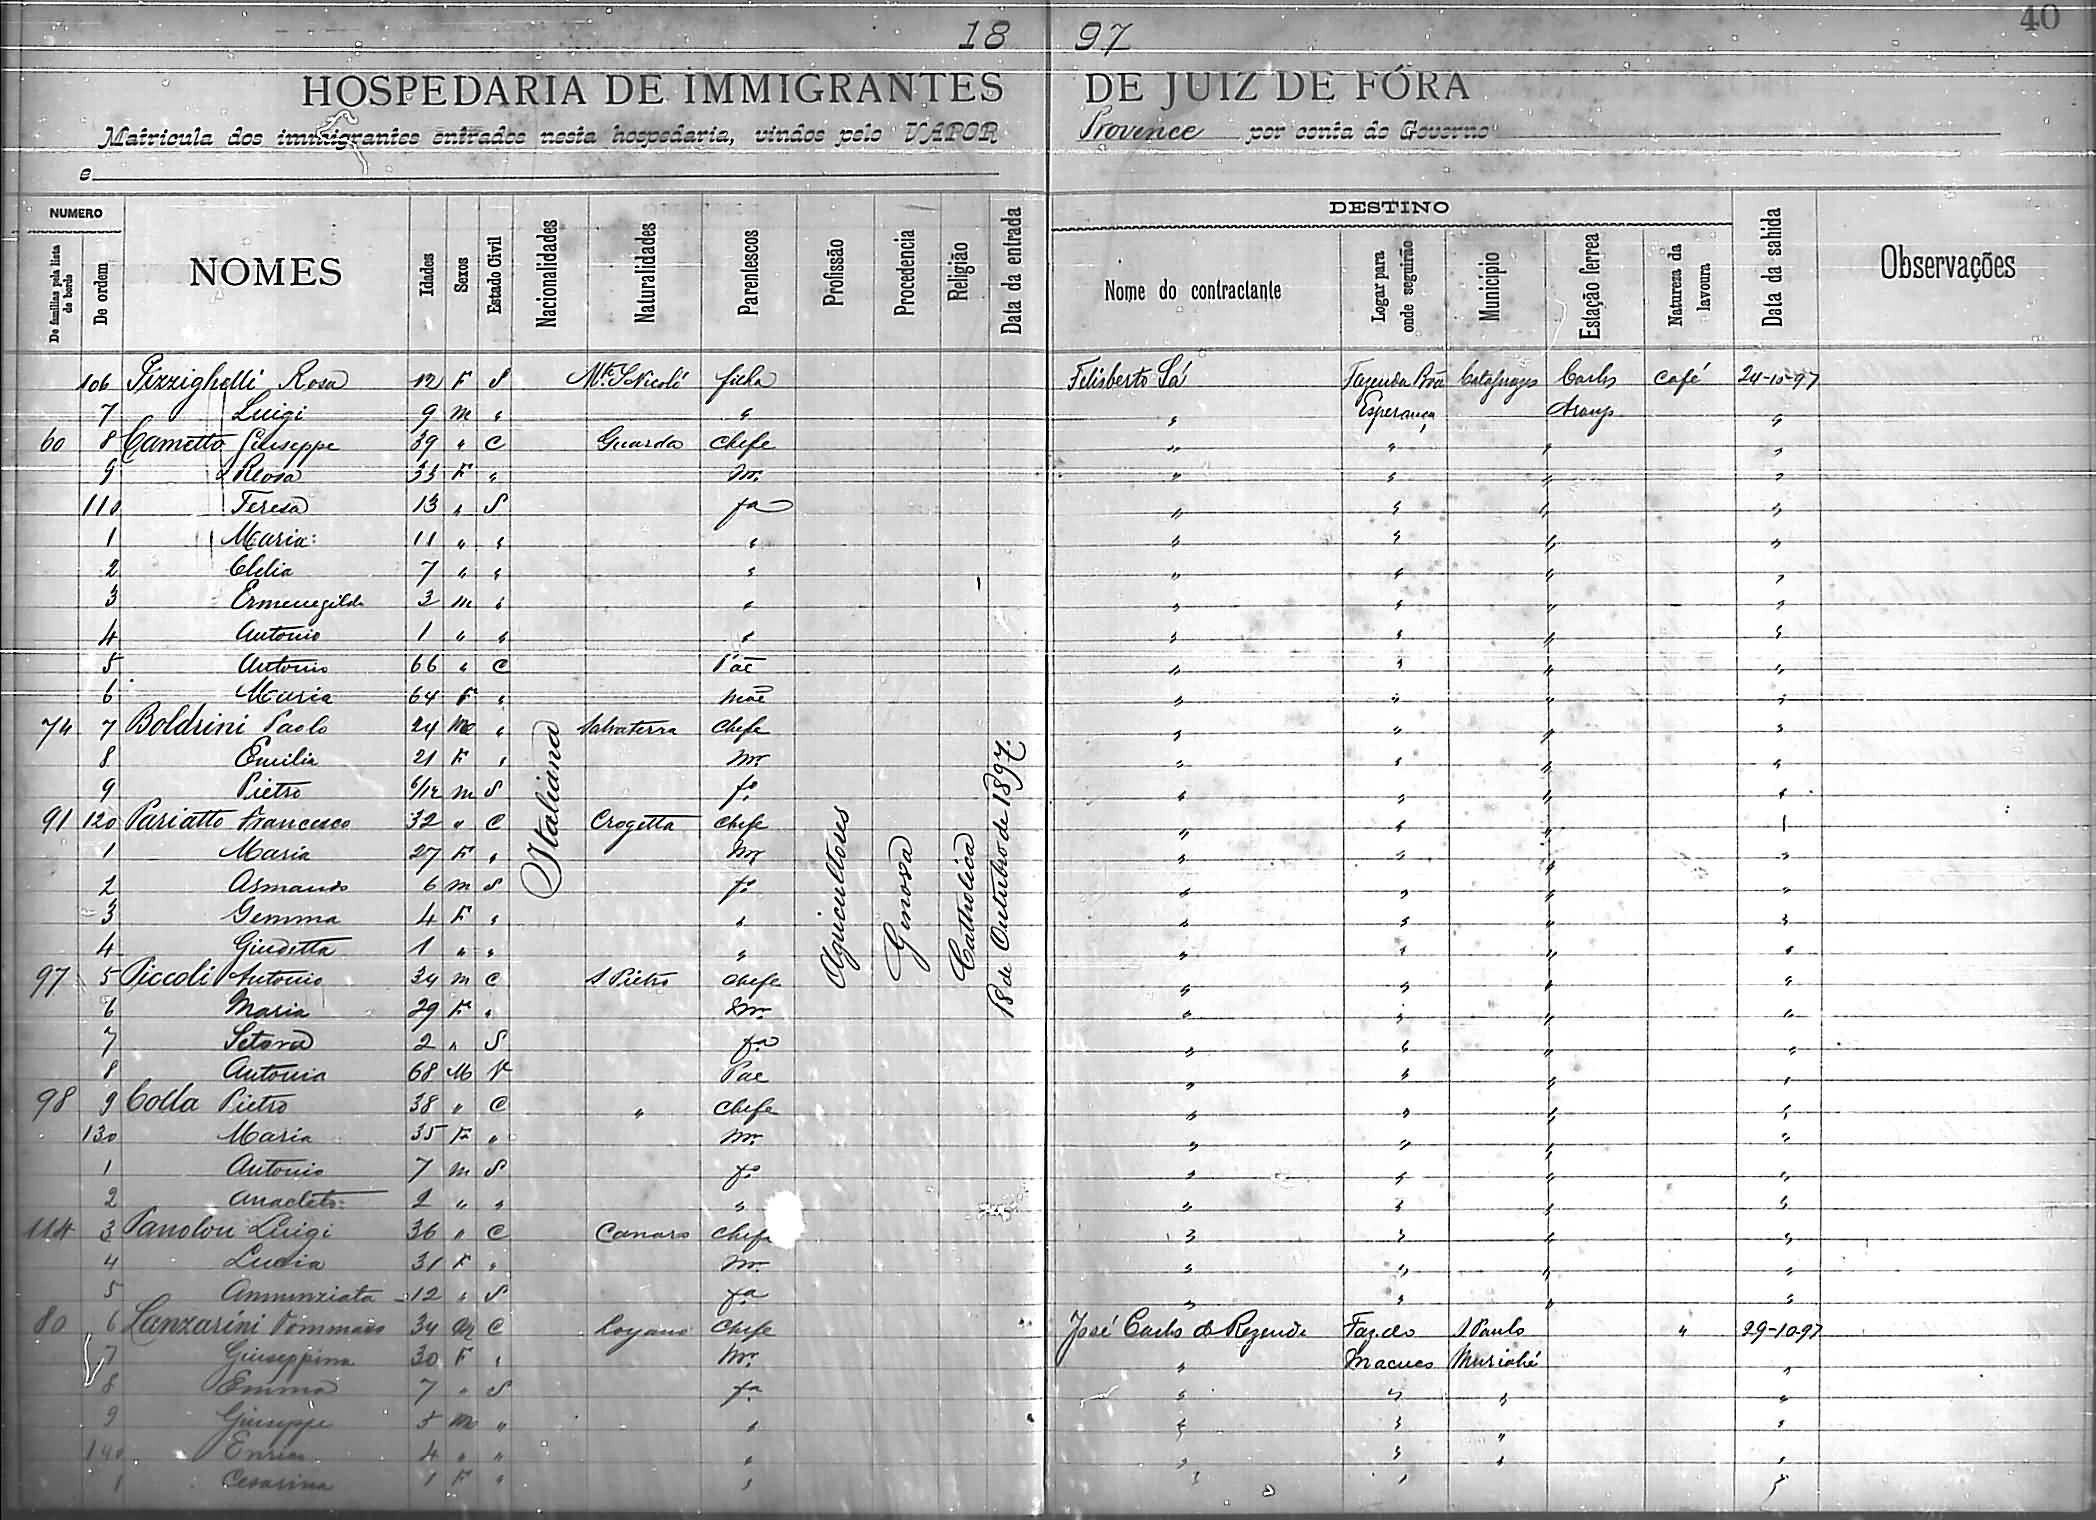 40
18 97
HOSPEDARIA DE IMMIGRANTES DE JUIZ DE FÓRA
Matricula dos immigrantes entrados nesta hospedaria, vindos pelo VAPOR Provence por conta do Governo
e
NUMERO
De familias pela lista de bordo
De ordem
NOMES
Idades
Sexos
Estado Civil
Nacionalidades
Naturalidades
Parentescos
Profissão
Procedencia
Religião
Data da entrada
DESTINO
Nome do contractante
Logar para onde seguirão
Municipio
Estação ferrea
Natureza da lavoura
Data da sahida
Observações
106 Pizzighelli Rosa 12 F S Mte S Nicoló filha Felisberto Sá Fazenda Boa Cataguazes Carlos Café 24-10-97
7 Luigi 9 M " " " Esperança "
60 8 Cametto Giuseppe 39 " C Guarda Chefe " " " "
9 33 F " Mr. " " " "
110 Teresa 13 " S fa " " " "
1 Maria 11 " " " " " " "
2 Clelia 7 " " " " " " "
3 Ermenegildo 3 m " " " " " "
4 Antonio 1 " " " " " " "
5 Antonio 66 " C Pae " " " "
6 Maria 64 F " mãe " " " "
74 7 Boldrini Paolo 24 M " Salvaterra Chefe " " " "
8 Emilia 21 F " Mr. " " " "
9 Pietro 6/12 m S fo " " " "
91 120 Pariatto Francesco 32 " C Crogetta Chefe " " "
1 Maria 27 F " Mr " " " "
2 Armando 6 m S fo " " " "
3 Gemma 4 F " " " " " "
4 Giuditta 1 " " " " " " "
97 5 Piccoli Antonio 34 m C S Pietro Chefe " " " "
6 Maria 29 F " Mr. " " " "
7 2 " S fa " " " "
8 Antonio 68 M V Pae " " " "
98 9 Colla Pietro 38 " C " Chefe " " " "
130 Maria 35 F " Mr. " " " "
1 Antonio 7 m S fo " " " "
2 Anacleto 2 " " " " " " "
114 3 Luigi 36 " C Canaro Chefe " " " "
4 Lucia 31 F " Mr. " " " "
5 Annunziata 12 " S fa " " " "
80 6 Lanzarini Tommaso 34 M C Chefe José Carlos de Rezende Faz. do S Paulo " 29-10-97
7 Giuseppina 30 F " Mr. " Macucos Muriahé "
8 Emma 7 " S fa " " " "
9 Giuseppe 5 M " " " " " "
140 Enrico 4 " " " " " " "
1 Cesarina 1 F " " " " "
Italiana
Agricultores
Genova
Catholica
18 de Outubro de 1897.